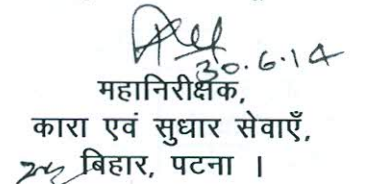 30.6.14
महानिरीक्षक,
कारा एवं सुधार सेवाएँ,
बिहार, पटना ।